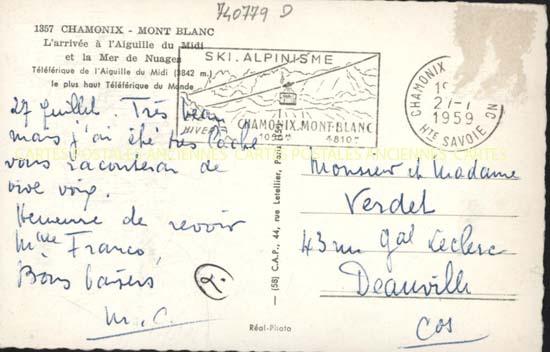 740779 D
1357 CHAMONIX - MONT BLANC
L'arrivée à l'Aiguille du Midi
et la Mer de Nuages
Téléférique de l'Aiguille du Midi (3842 m.)
le plus haut Téléférique du Monde
SKI. ALPINISME
HIVER
CHAMONIX. MONT-BLANC
CHAMONIX MONT BLANC
1959
HTE SAVOIE
27 Juillet. Très beau
mais j'ai été très
vous raconterai de
vive voix.
Heureuse de revoir
Mme Franco,
Bons baisers
M. C.
Monsieur et Madame
Verdel
43 rue Gal Leclerc
Deauville
Cos
CARTES POSTALES ANCIENNES CARTES POSTALES ANCIENNES CARTES
— (58) C.A.P., 44, rue Letellier, Paris
Réal-Photo